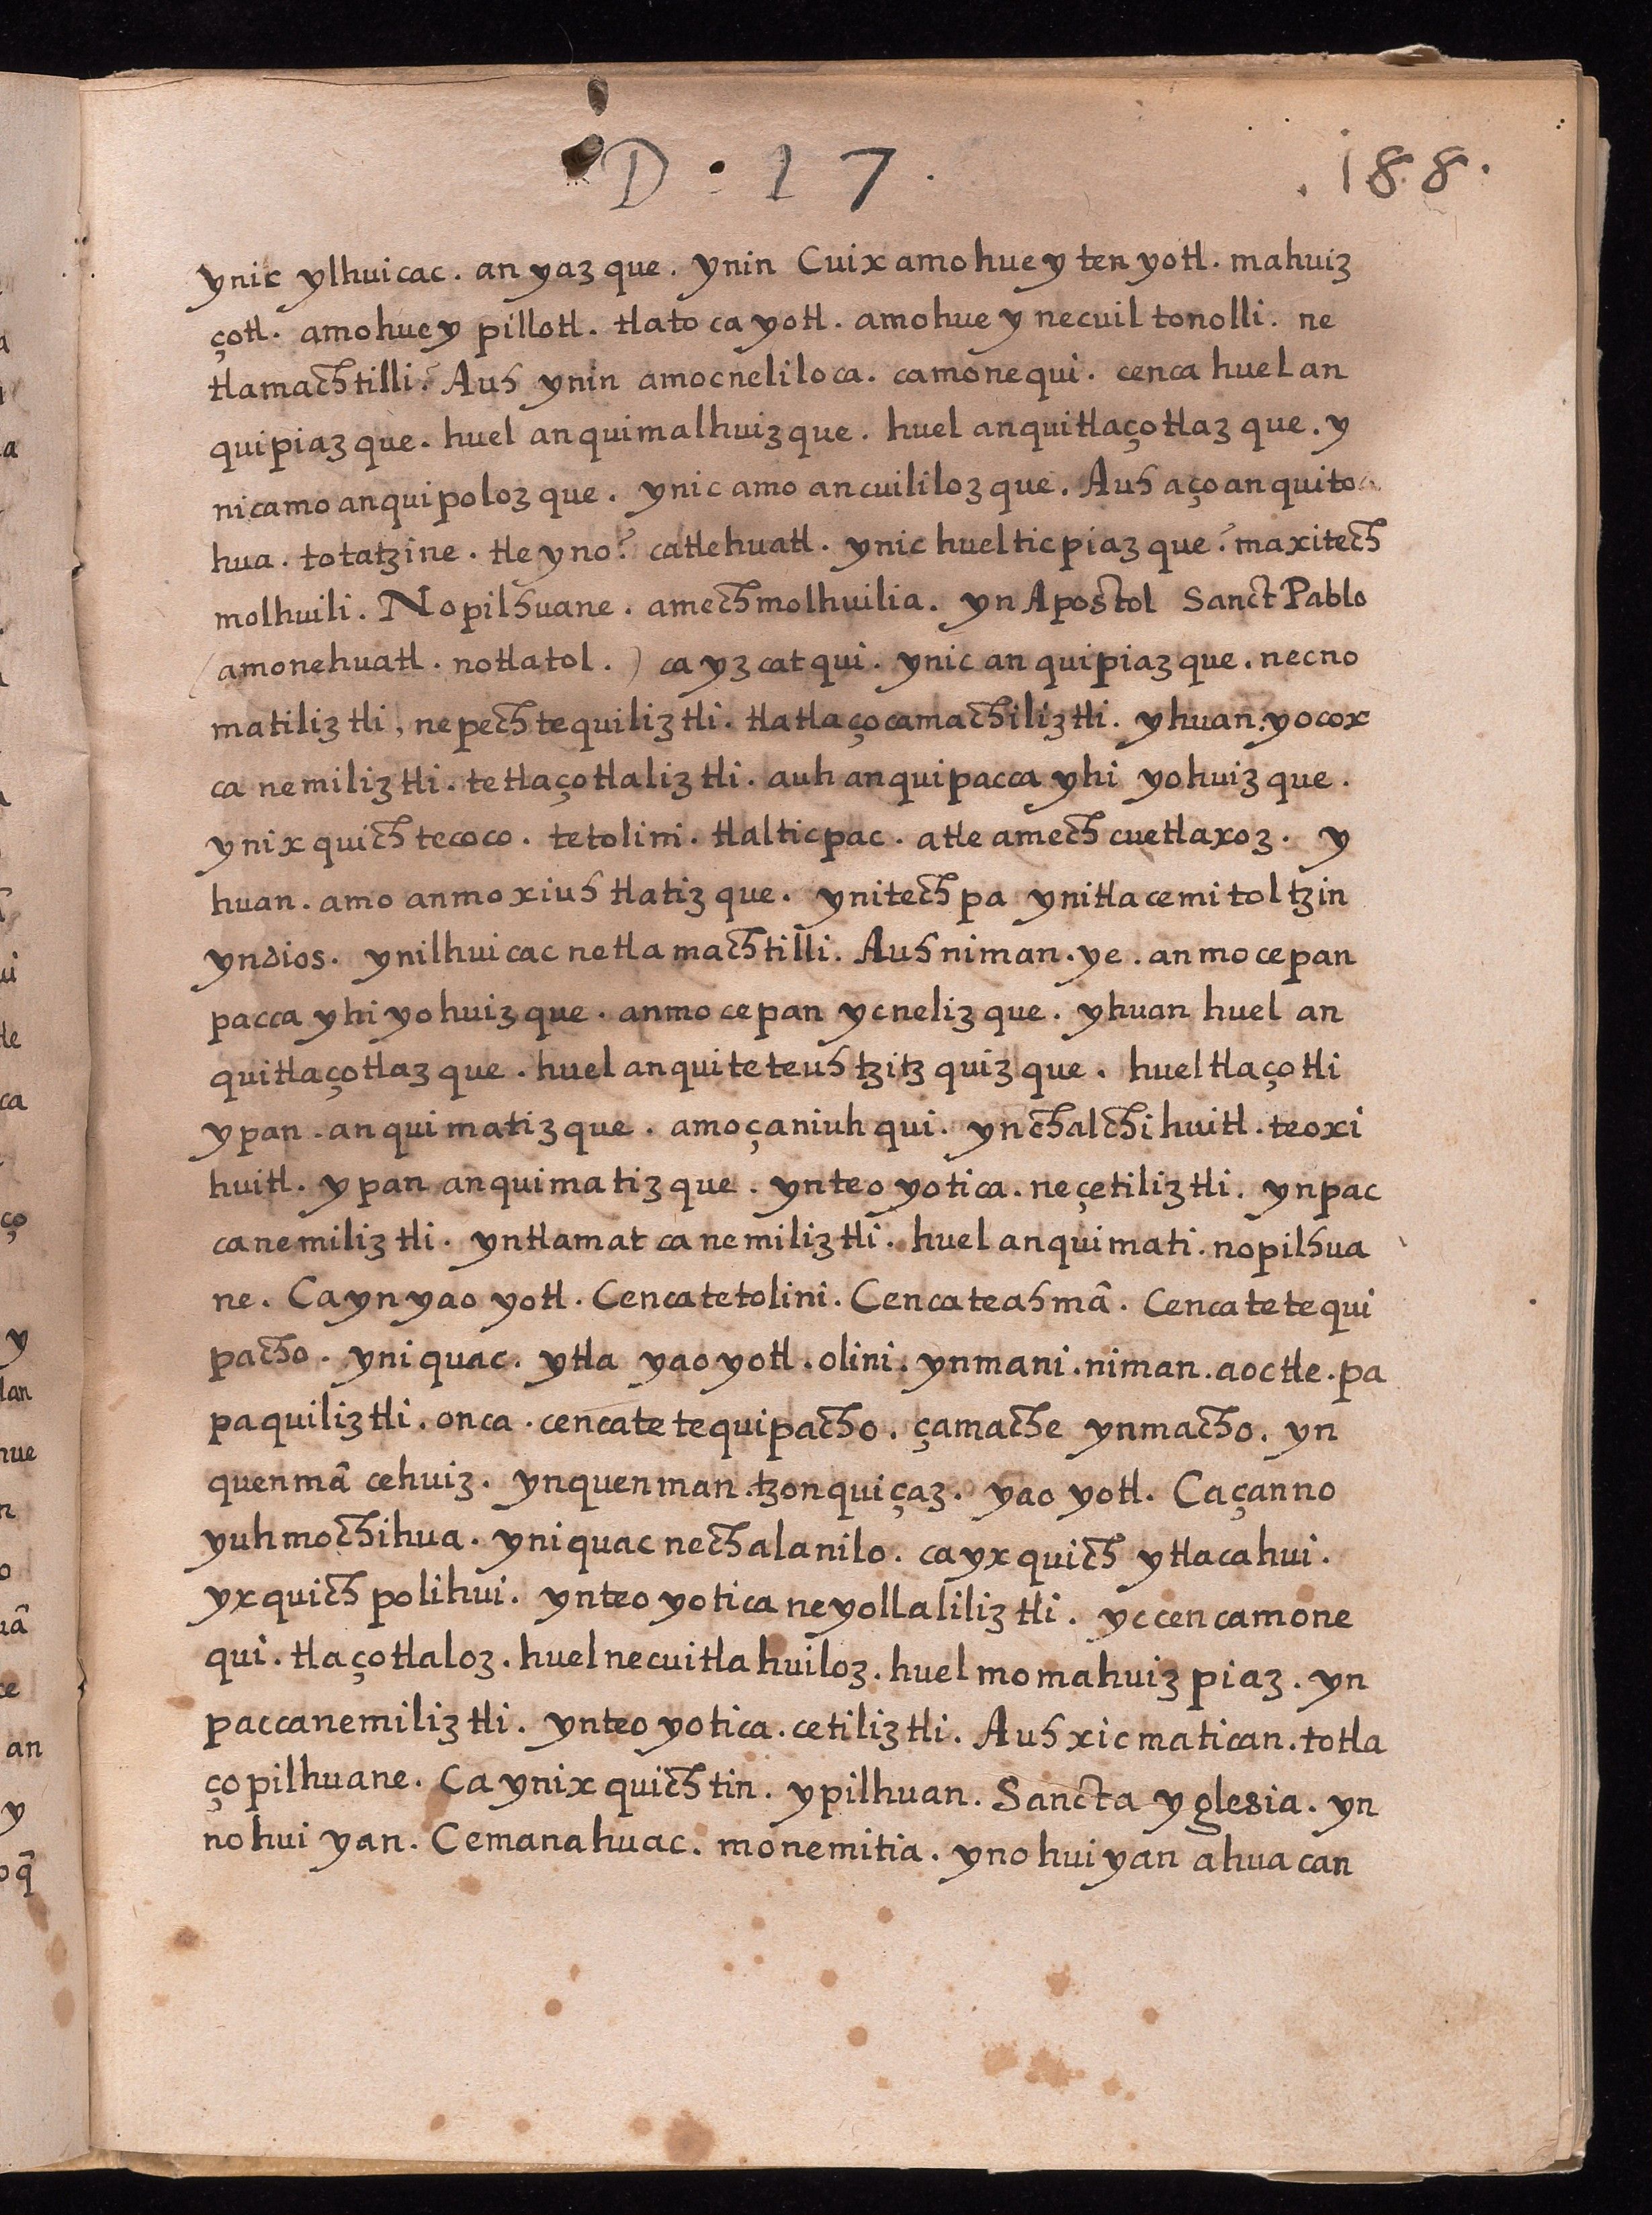 D . 17 .
. 188 .
ynic ylhuicac. an yaz que. ynin Cuix amo huey ten yotl. mahuiz
çotl. amo huey pillotl. tlato ca yotl. amo hue y necuil tonolli. ne
tlamachtilli? Auh ynin amocneliloca. camonequi. cenca huel an
quipiaz que. huel anquimalhuizque. huel anquitlaçotlaz que. y
nicamo anquipoloz que. ynic amo ancuililoz que. Auh aço anquitoa
hua. totatzine. tle yno? catlehuatl. ynic hueltic piaz que? maxitech
molhuili. Nopilhuane. amechmolhuilia. yn Apostol Sanct Pablo
(amonehuatl. notlatol.) ca yz catqui. ynic an quipiaz que. necno
matiliztli, nepechtequiliztli. tlatlaçocamachiliztli. yhuan. yocox
ca nemiliztli. tetlaçotlaliztli. auh anquipacca yhi yohuiz que.
ynix quich tecoco. tetolini. tlalticpac. atle amech cuetlaxoz. y
huan. amo anmoxiuh tlatiz que. ynitech pa ynitlacemitoltzin
yndios. ynilhuicac netlamachtilli. Auh niman. ye. an mo cepan
pacca yhi yohuiz que. anmo cepan ycneliz que. yhuan huel an
quitlaçotlaz que. huel anquiteteuh tzitz quiz que. huel tlaçotli
ypan. anquimatiz que. amo çaniuh qui. yn chalchihuitl. teoxi
huitl. ypan anquimatiz que. ynteo yotica. neçetiliztli. ynpac
canemiliztli. yntlamat canemiliztli. huel anquimati. nopilhua
ne. Ca yn yao yotl. Cencatetolini. Cencateahmã. Cencatetequi
pacho. yniquac. ytla yaoyotl. olini. ynmani. niman. aoctle. pa
paquiliztli. onca. cencatetequipacho. çamache ynmacho. yn
quenmã cehuiz. ynquenman. tzonquiçaz. yao yotl. Caçanno
yuhmochihua. yniquac nechalanilo. cayxquich ytlacahui.
yxquich polihui. ynteo yotica neyollaliliztli. yccencamone
qui. tlaçotlaloz. huelnecuitlahuiloz. huel momahuiz piaz. yn
paccanemiliztli. ynteo yotica. cetiliztli. Auh xic matican. totla
çopilhuane. Ca ynixquichtin. ypilhuan. Sancta yglesia. yn
nohui yan. Cemanahuac. monemitia. ynohuiyan ahuacan